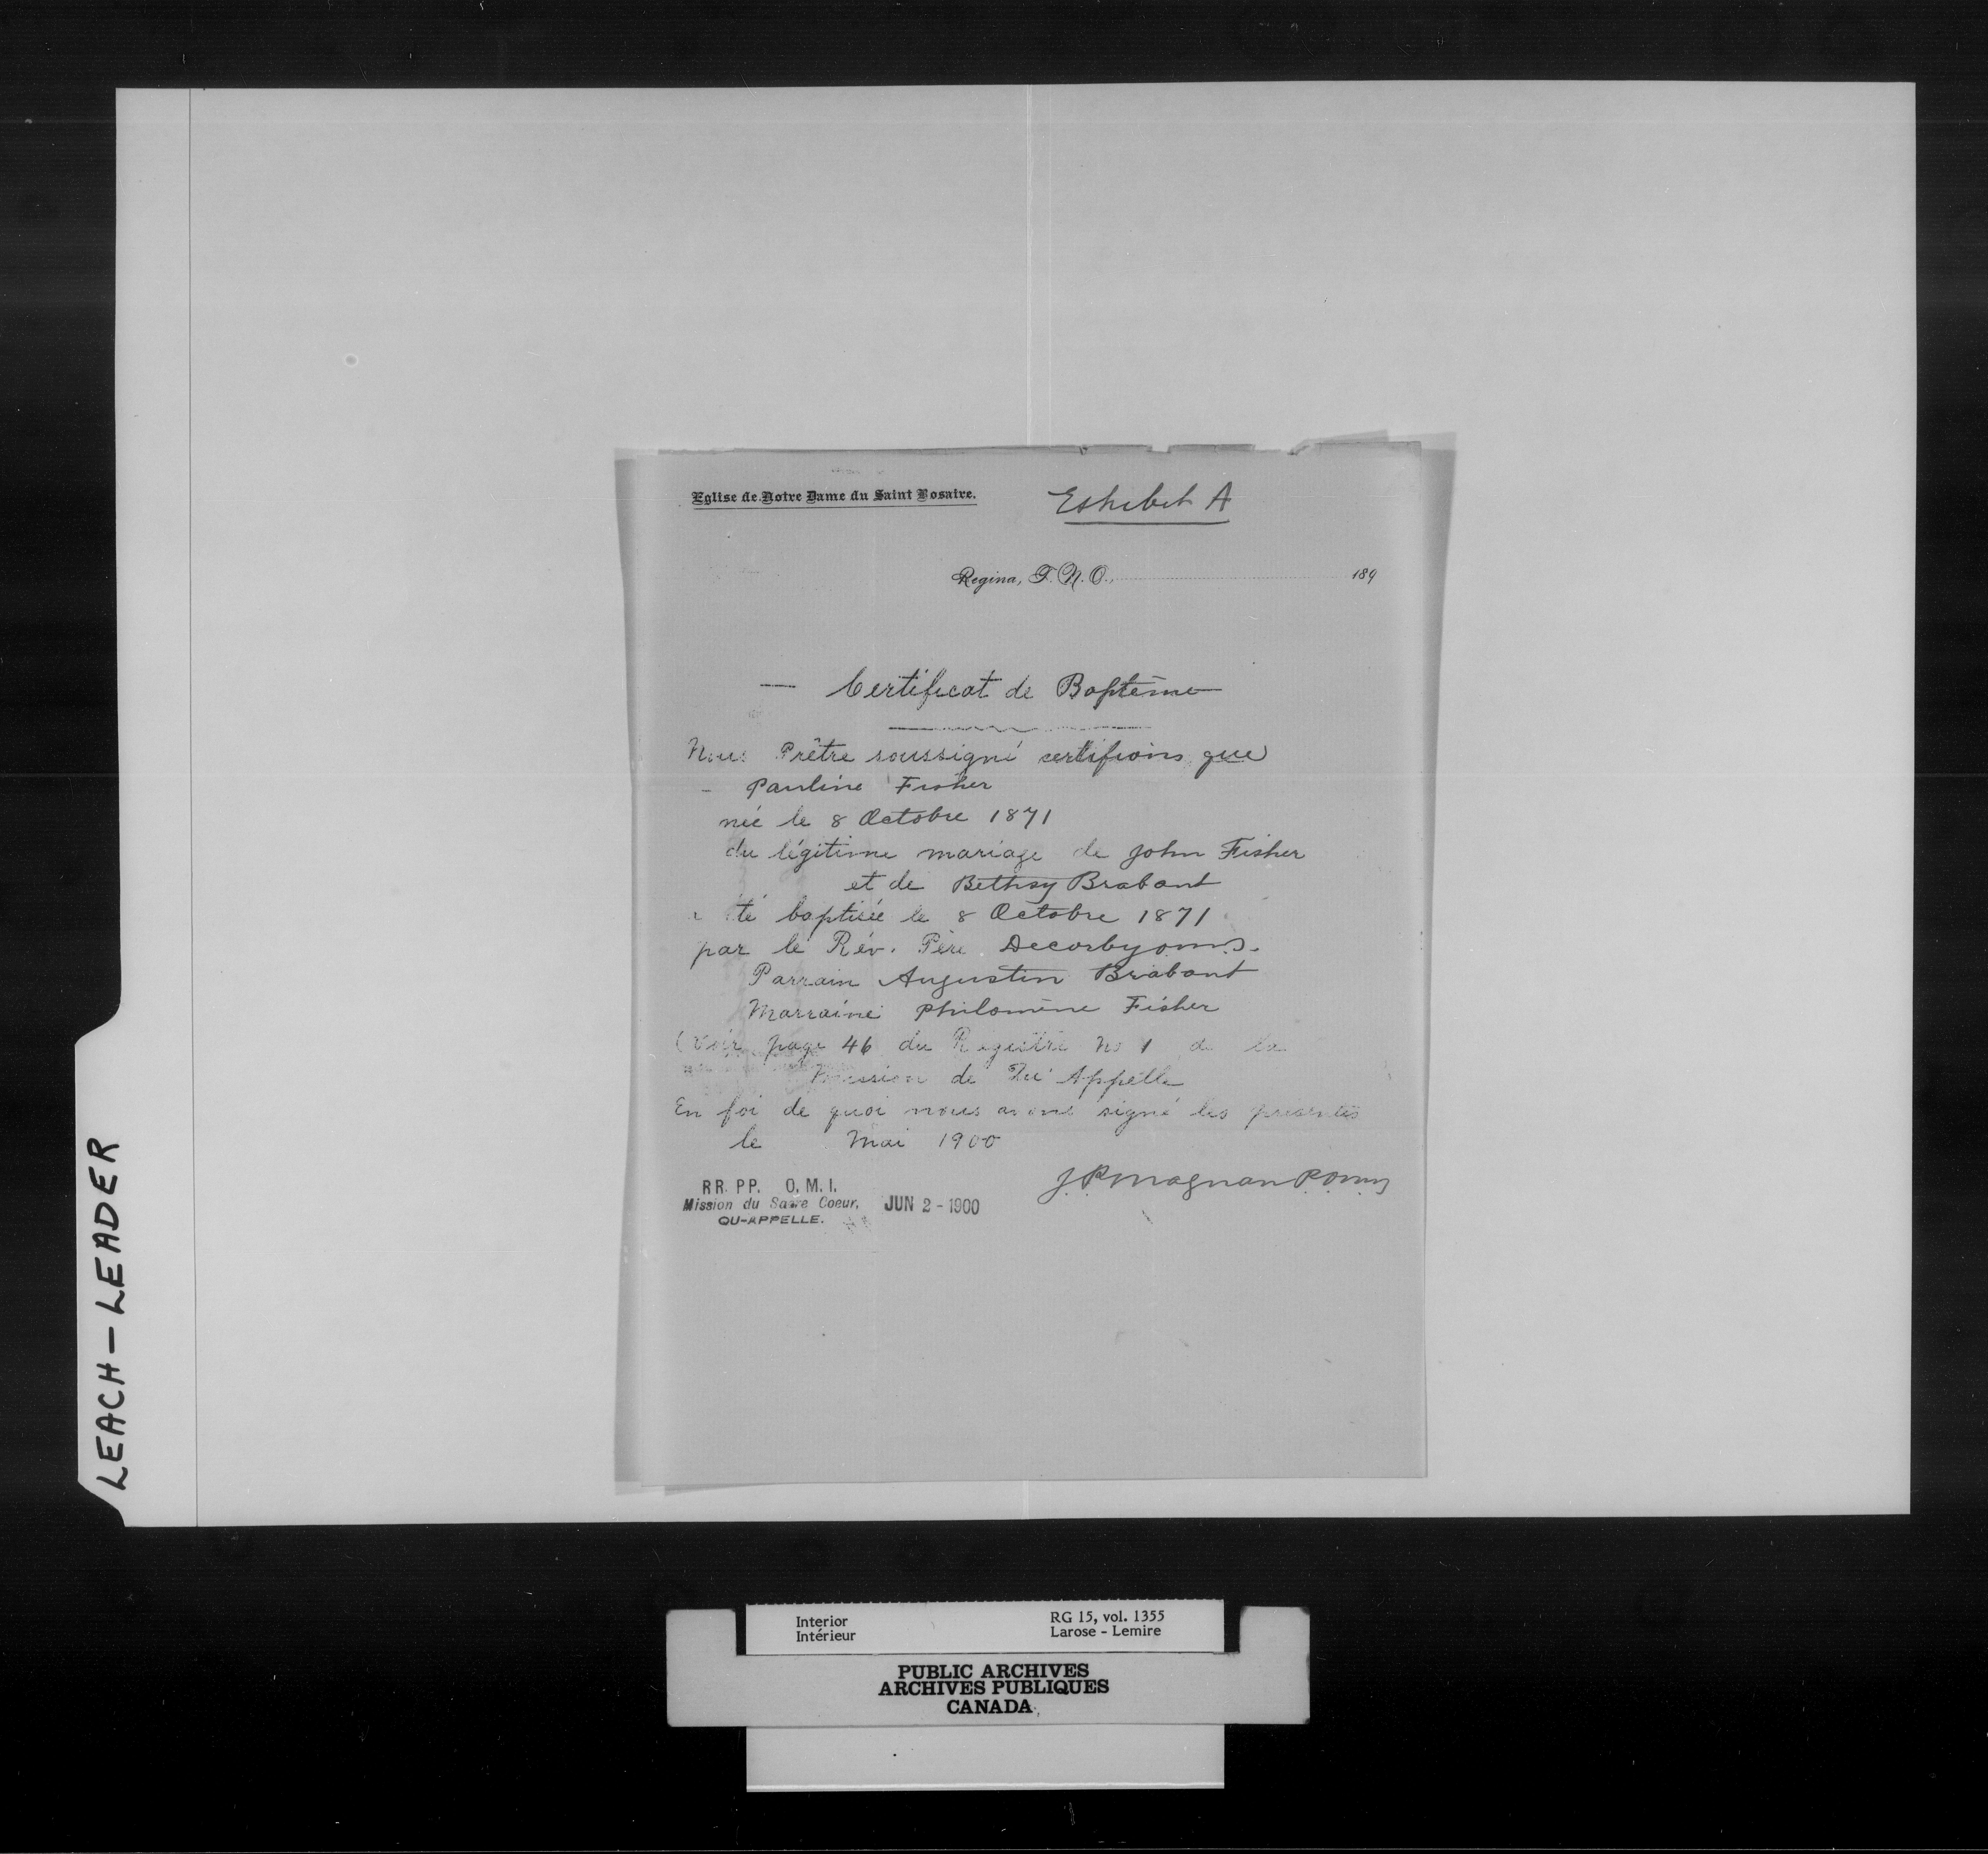 Eglise de Notre Dame du Saint Rosaire.
Exhibit A
Regina, T. N. O., 189
— Certificat de Baptême
Nous Prêtre soussigné certifions que
- Pauline Fisher
née le 8 Octobre 1871
du légitime mariage de John Fisher
et de Bethsy Brabant
a été baptisée le 8 Octobre 1871
par le Rév. Père Decorby o.m.i.
Parrain Augustin Brabant
Marraine Philomène Fisher
(Voir page 46 du Registre No 1 de la
Mission de Qu'Appelle
En foi de quoi nous avons signé les présentes
le Mai 1900
J. P. Magnan P.O.M.I.
RR. PP. O. M. I.
Mission du Sacre Coeur,
QU-APPELLE.
JUN 2 - 1900
LEACH-LEADER
Interior
Intérieur
RG 15, vol. 1355
Larose - Lemire
PUBLIC ARCHIVES
ARCHIVES PUBLIQUES
CANADA